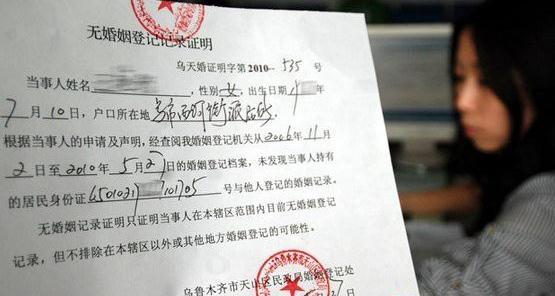 无婚姻登记记录证明
乌天婚证明字第2010-535号
当事人姓名 ，性别女，出生日期 年
7月10日，户口所在地
根据当事人的申请及声明，经查阅我婚姻登记机关从2006年11月
2日至2010年5月27日的婚姻登记档案，未发现当事人持有
的居民身份证 号与他人登记的婚姻记录。
无婚姻记录证明只证明当事人在本辖区范围内目前无婚姻登记
记录，但不排除在本辖区以外或其他地方婚姻登记的可能性。
乌鲁木齐市天山区民政局婚姻登记处